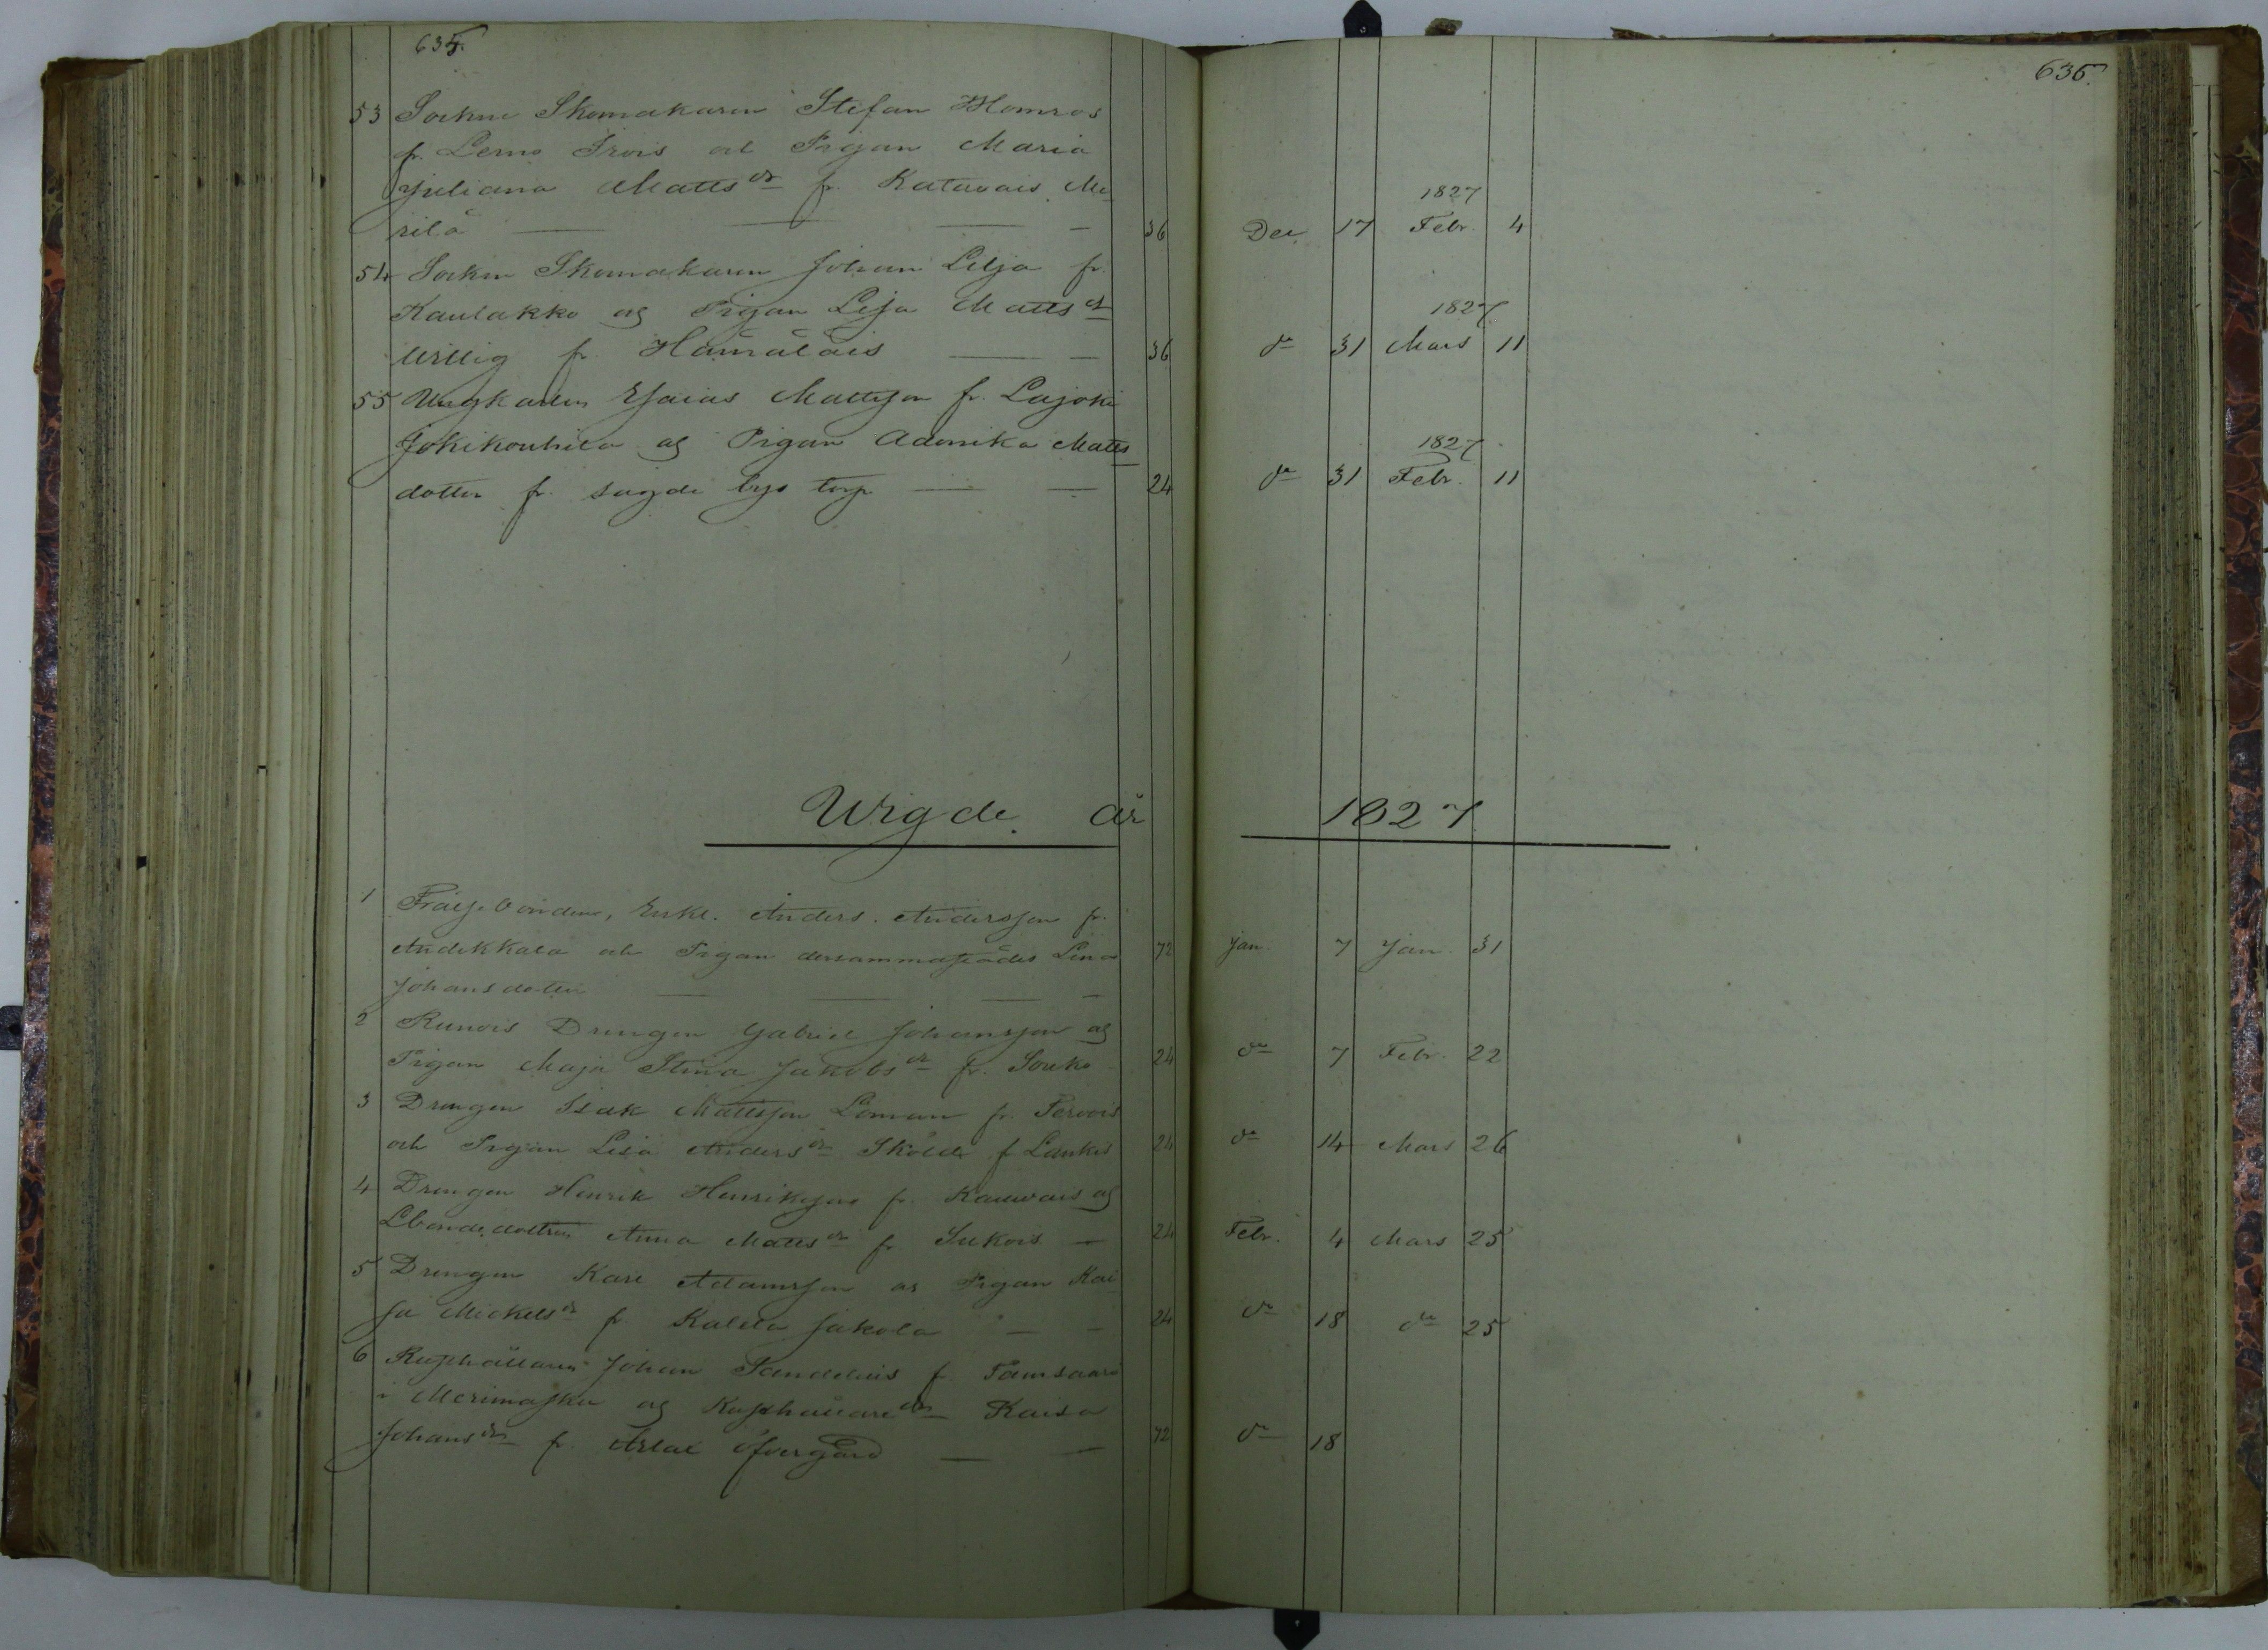 635.
636.
53 Sockne Skomakaren Stefan Blomros
fr. Lemo Irois och Pigan Maria
Juliana Mattsdr fr. Katavais Me-
rilä — — — — 36 Dec. 17 1827 Febr. 4
54 Sockne Skomakaren Johan Lilja fr.
Kaulakko og Pigan Lisa Mattsdr
Willig fr. Hämäläis — — 36 do 31 1827 Mars 11
55 Ungkarlen Esaias Mattsson fr. Lajoki
Jokikouhila og Pigan Adonika Matts-
dotter fr. sagde bys torp — — 24 do 31 1827 Febr. 11
Wigde år 1827
1 Frälsebonden, Enkl. Anders Andersson fr.
Andikkala och Pigan dersammastädes Lena 72 Jan. 7 Jan. 31
Johansdotter — — — —
2 Runois Drengen Gabriel Johansson og
Pigan Maja Stina Jakobsdr fr. Souko 24 do 7 Febr. 22
3 Drengen Isak Mattsson Loman fr. Fervois
och Pigan Lisa Andersdr Sköld fr Laukis 24 do 14 Mars 26
4 Drengen Henrik Henriksson fr. Kauvais og
Lbondedottren Anna Mattsdr fr Sukois — 24 Febr. 4 Mars 25
5 Drengen Karl Adamsson og Pigan Kai-
sa Mickelsdr fr. Kalela Jakola — — 24 do 18 do 25
6 Rusthållaren Johan Sandelius fr Tamsaari
i Merimasku og Rusthållaredr Kaisa
Johansdr fr. Arlax Öfvergård — — 72 do 18